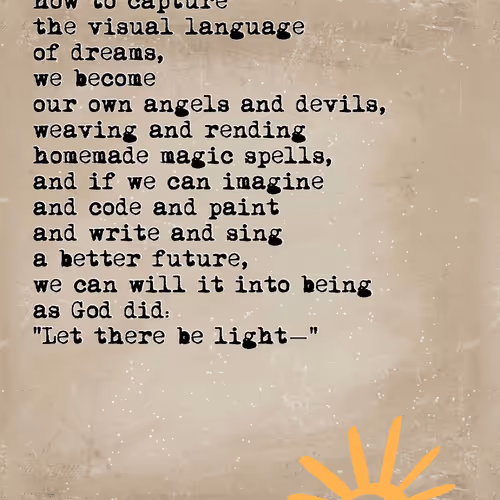 how to capture
the visual language
of dreams,
we become
our own angels and devils,
weaving and rending
homemade magic spells,
and if we can imagine
and code and paint
and write and sing
a better future,
we can will it into being
as God did:
"Let there be light—"